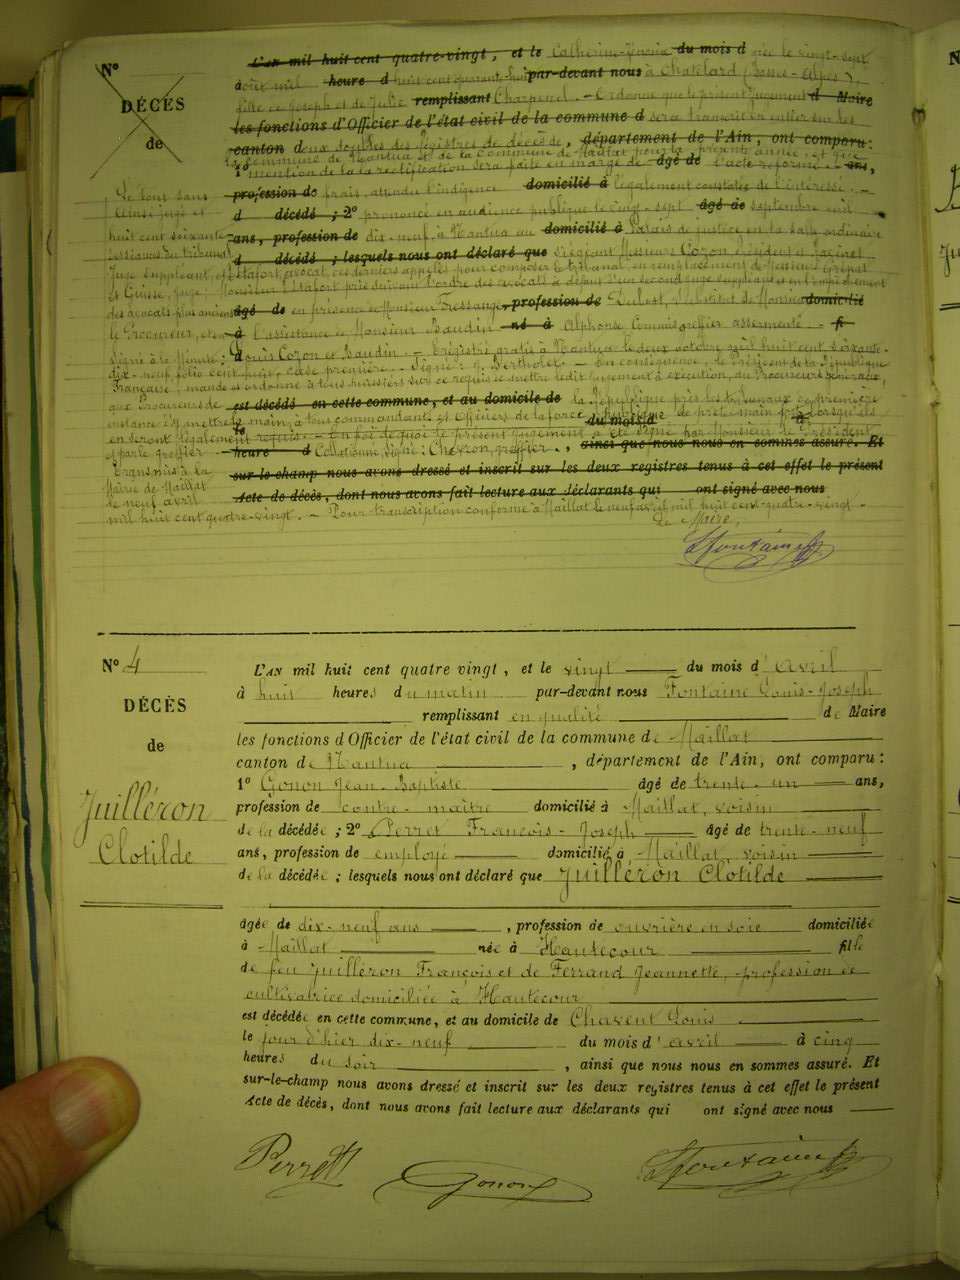 N°
DÉCÈS
de
L'AN mil huit cent quatre-vingt, et le Catherine du mois d née le vingt-sept
août mil heure d huit cent quarante-huit par-devant nous à Chatelard (Basses-Alpes),
fille de Joseph et de Julie remplissant Charpenel. – Ordonne que le présent jugement d Maire
les fonctions d'Officier de l'état civil de la commune d sera transcrit en entier sur les
canton deux doubles des registres de décès de, département de l'Ain, ont comparu:
la commune de Nantua et de la commune de Maillat pour la présente année, et que
1° mention de la rectification sera faite en marge de âgé de l'acte réformé. – ans,
Le tout sans profession de frais, attendu l'indigence domicilié à légalement constatée de l'intéressé. –
Ainsi jugé et d décédé; 2° prononcé en audience publique le cinq sept âgé de septembre mil
huit cent soixante- ans, profession de dix-neuf, à Nantua au domicilié à Palais de justice en la salle ordinaire
des séances du tribunal d décédé; lesquels nous ont déclaré que siégeant Messieurs Cozon président et
Juge suppléant, et Estafort, avocat, ces derniers appelés pour composer le tribunal, en remplacement de Messieurs
et Guisse, juge; Monsieur Estafort pris suivant l'ordre des avocats à défaut d'un second juge suppléant et en l'empêchement
des avocats plus anciens âgé de en présence de Monsieur Tressange, profession de substitut de Monsieur domicilié
le Procureur, et en à l'assistance de Monsieur Baudin né à Alphonse, Commis greffier assermenté. – fi
Signé à la Minute: Louis Cozon et Baudin. – Enregistré gratis à Nantua le deux octobre mil huit cent soixante-
dix-neuf folio cent huit, case première. – Signé: J. Bertholet. – En conséquence, le Président de la République
Française, mande et ordonne à tous huissiers sur ce requis de mettre ledit jugement à exécution, au Procureurs généraux,
aux Procureurs de est décédé en cette commune, et au domicile de la République près les tribunaux de première
instance d'y mettre la main, à tous commandants et Officiers de la force publique du mois d de prêter main forte lorsqu'ils
en seront légalement le requis. – En foi de quoi le présent jugement a été signé par Monsieur le Président
et par le greffier – heure d Collationné, signé: Chevron, greffier., ainsi que nous nous en sommes assuré. Et
Transmis à la sur-le-champ nous avons dressé et inscrit sur les deux registres tenus à cet effet le présent
Mairie de Maillat
le neuf avril Acte de décès, dont nous avons fait lecture aux déclarants qui ont signé avec nous
mil huit cent quatre-vingt. – Pour transcription conforme à Maillat le neuf avril mil huit cent quatre-vingt. –
Le Maire,
L Fontaine
N° 4
DÉCÈS
de
Juilléron
Clotilde
L'AN mil huit cent quatre vingt, et le vingt du mois d'avril
à huit heures du matin par-devant nous Fontaine Louis-Joseph
remplissant en qualité de Maire
les fonctions d'Officier de l'état civil de la commune de Maillat
canton de Nantua, département de l'Ain, ont comparu:
1° Gonon Jean-Baptiste âgé de trente-un ans,
profession de contre-maître domicilié à Maillat, voisin
de la décédée; 2° Perret François-Joseph âgé de trente-neuf
ans, profession de employé domicilié à Maillat, voisin
de la décédée; lesquels nous ont déclaré que Juilléron Clotilde
âgée de dix-neuf ans, profession de ouvrière en soie domiciliée
à Maillat née à Hautecour fille
de feu Juilléron François et de Ferrand Jeannette, profession de
cultivatrice domiciliée à Hautecour
est décédée en cette commune, et au domicile de Chavent Louis
le jour d'hier dix-neuf du mois d'avril à cinq
heures du soir, ainsi que nous nous en sommes assuré. Et
sur-le-champ nous avons dressé et inscrit sur les deux registres tenus à cet effet le présent
Acte de décès, dont nous avons fait lecture aux déclarants qui ont signé avec nous
Perret Gonon L Fontaine